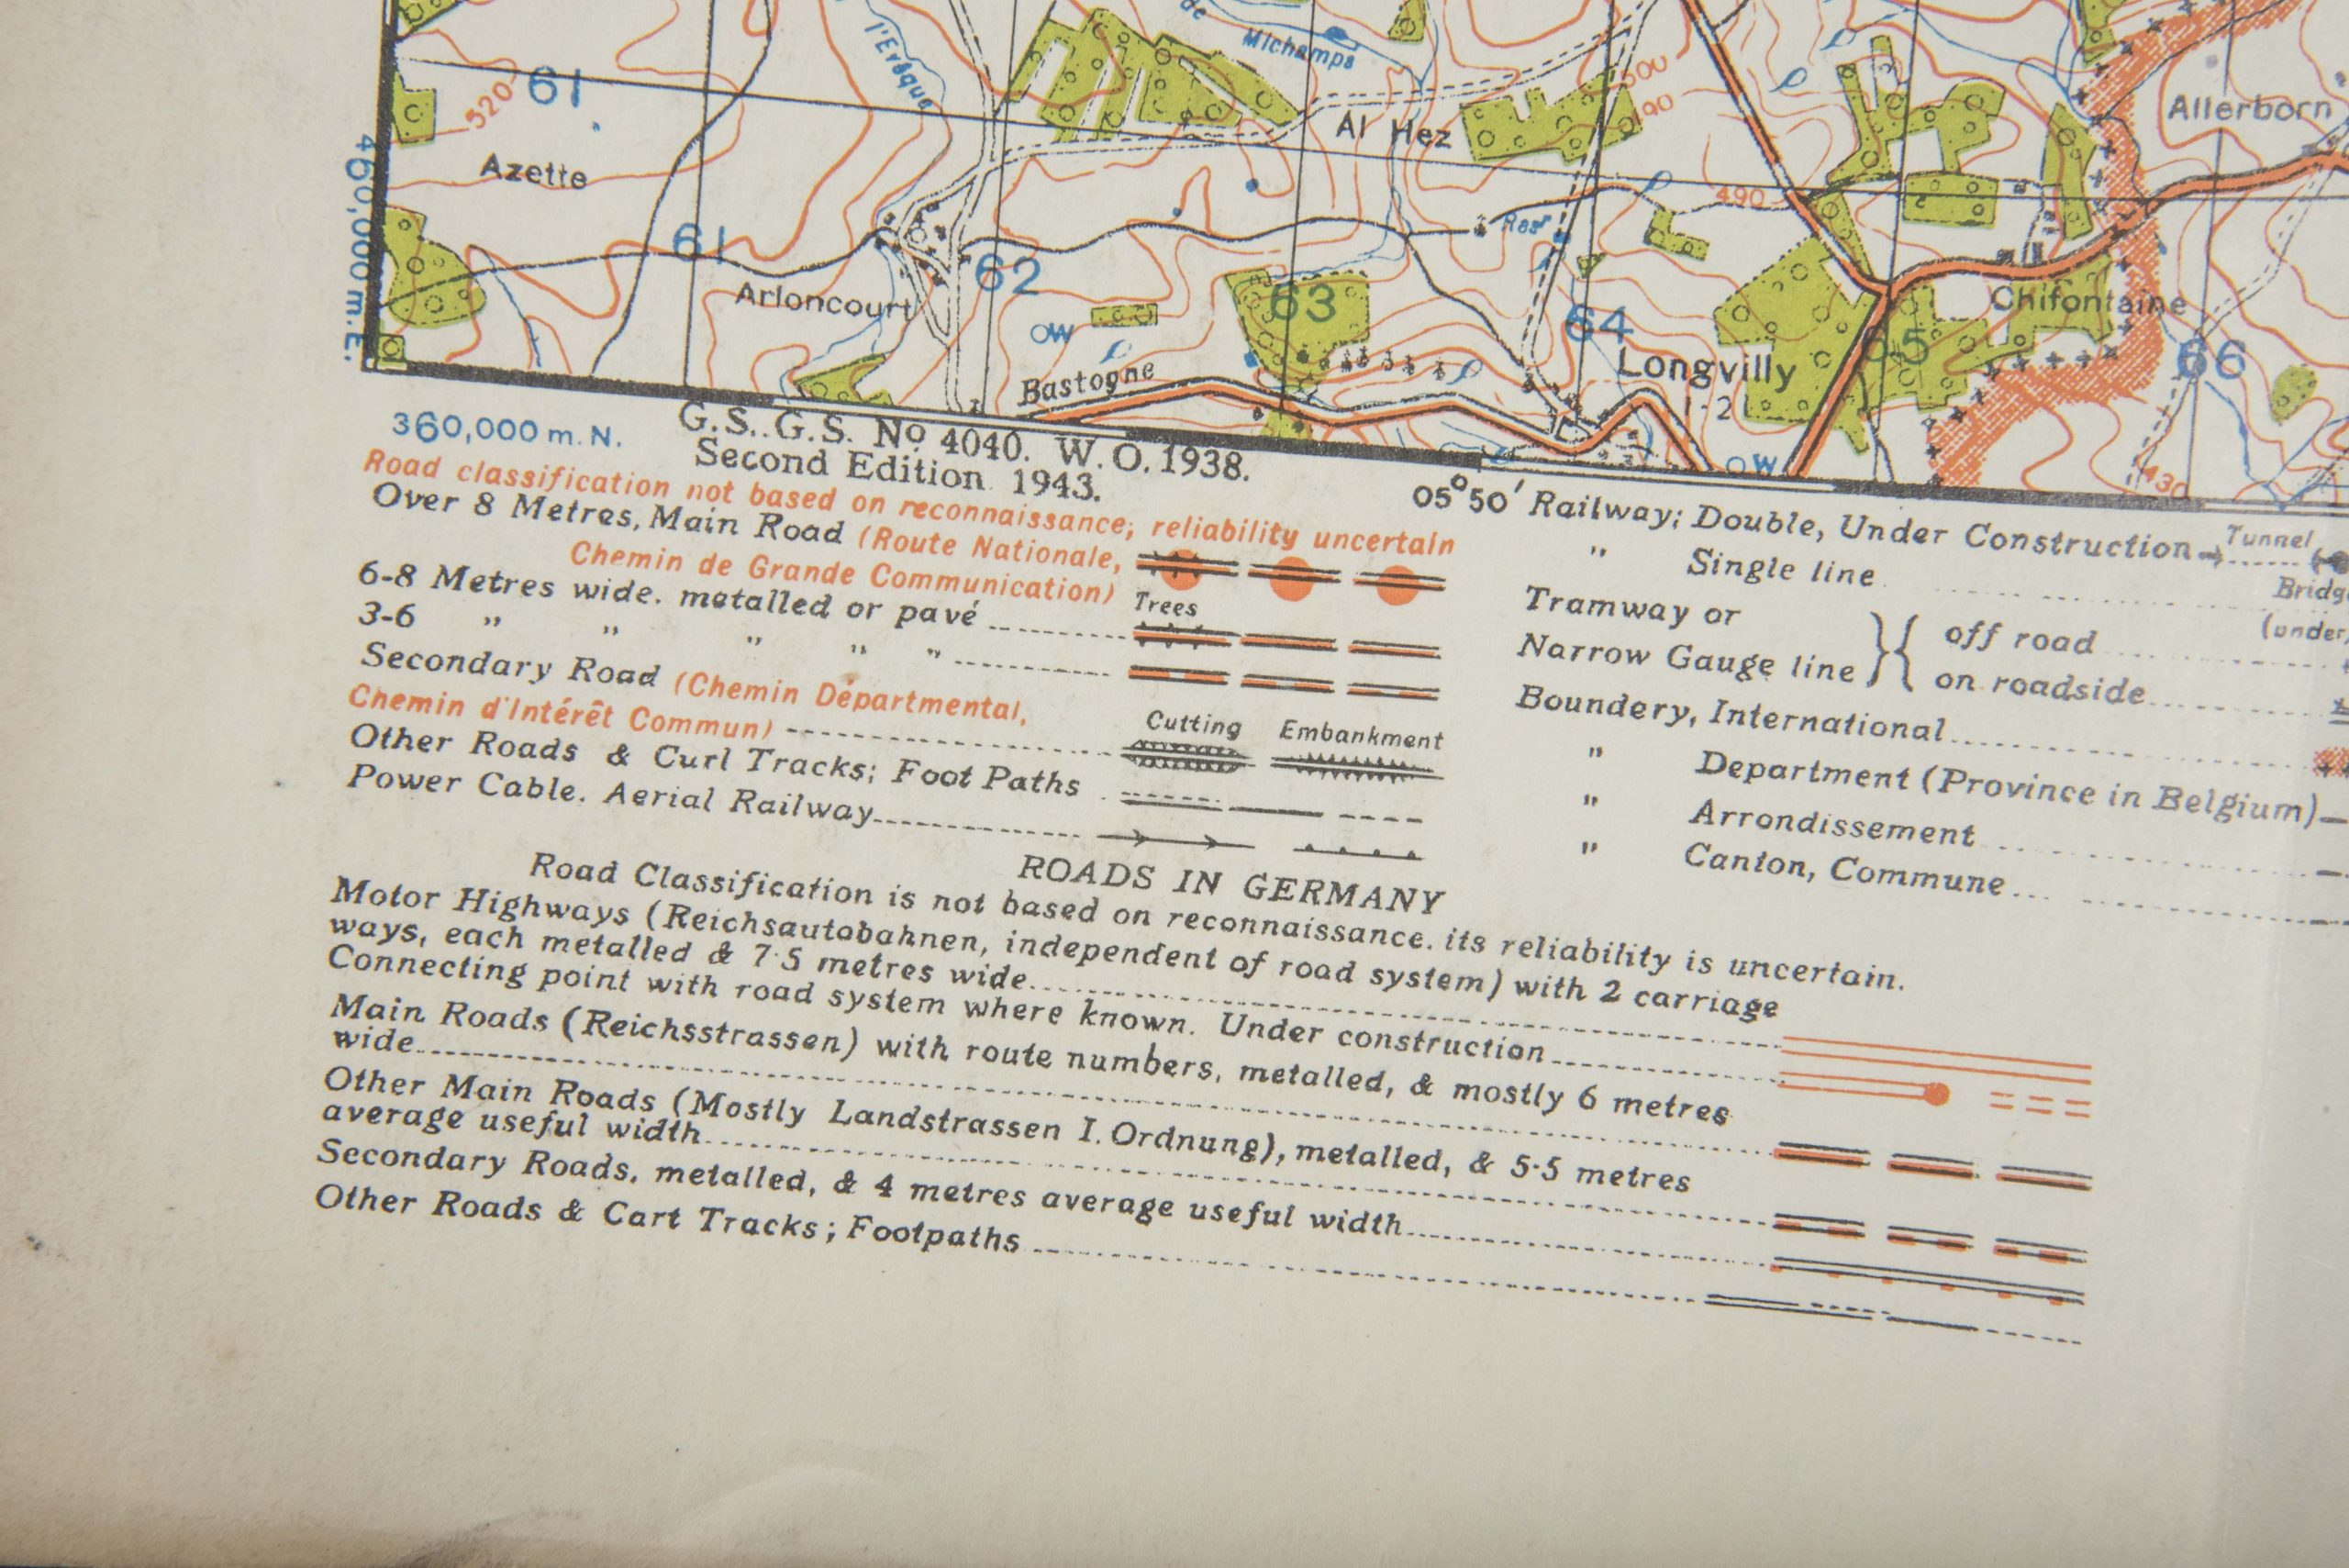 de
l'Evêque
Michamps
500
490
Al Hez
Allerborn
61
520
Azette
460,000 m.E.
490
Resr
61
62
Arloncourt
63
64
65
66
Chifontaine
OW
Bastogne
Longvilly
1·2
OW
430
360,000 m.N.
G.S..G.S. No 4040. W.O. 1938.
Second Edition 1943.
05°50'
Road classification not based on reconnaissance; reliability uncertain
Over 8 Metres, Main Road (Route Nationale,
Chemin de Grande Communication)
Trees
6-8 Metres wide. metalled or pavé
3-6 " " " " "
Secondary Road (Chemin Départmental,
Chemin d'Intérêt Commun)
Cutting Embankment
Other Roads & Curl Tracks; Foot Paths
Power Cable. Aerial Railway
Railway; Double, Under Construction
Tunnel
" Single line
Tramway or
Narrow Gauge line } { off road
on roadside
(under,
Boundery, International
" Department (Province in Belgium)
" Arrondissement
" Canton, Commune
ROADS IN GERMANY
Road Classification is not based on reconnaissance. its reliability is uncertain.
Motor Highways (Reichsautobahnen, independent of road system) with 2 carriage
ways, each metalled & 7·5 metres wide
Connecting point with road system where known. Under construction
Main Roads (Reichsstrassen) with route numbers, metalled, & mostly 6 metres
wide
Other Main Roads (Mostly Landstrassen I. Ordnung), metalled, & 5·5 metres
average useful width
Secondary Roads, metalled, & 4 metres average useful width
Other Roads & Cart Tracks; Footpaths